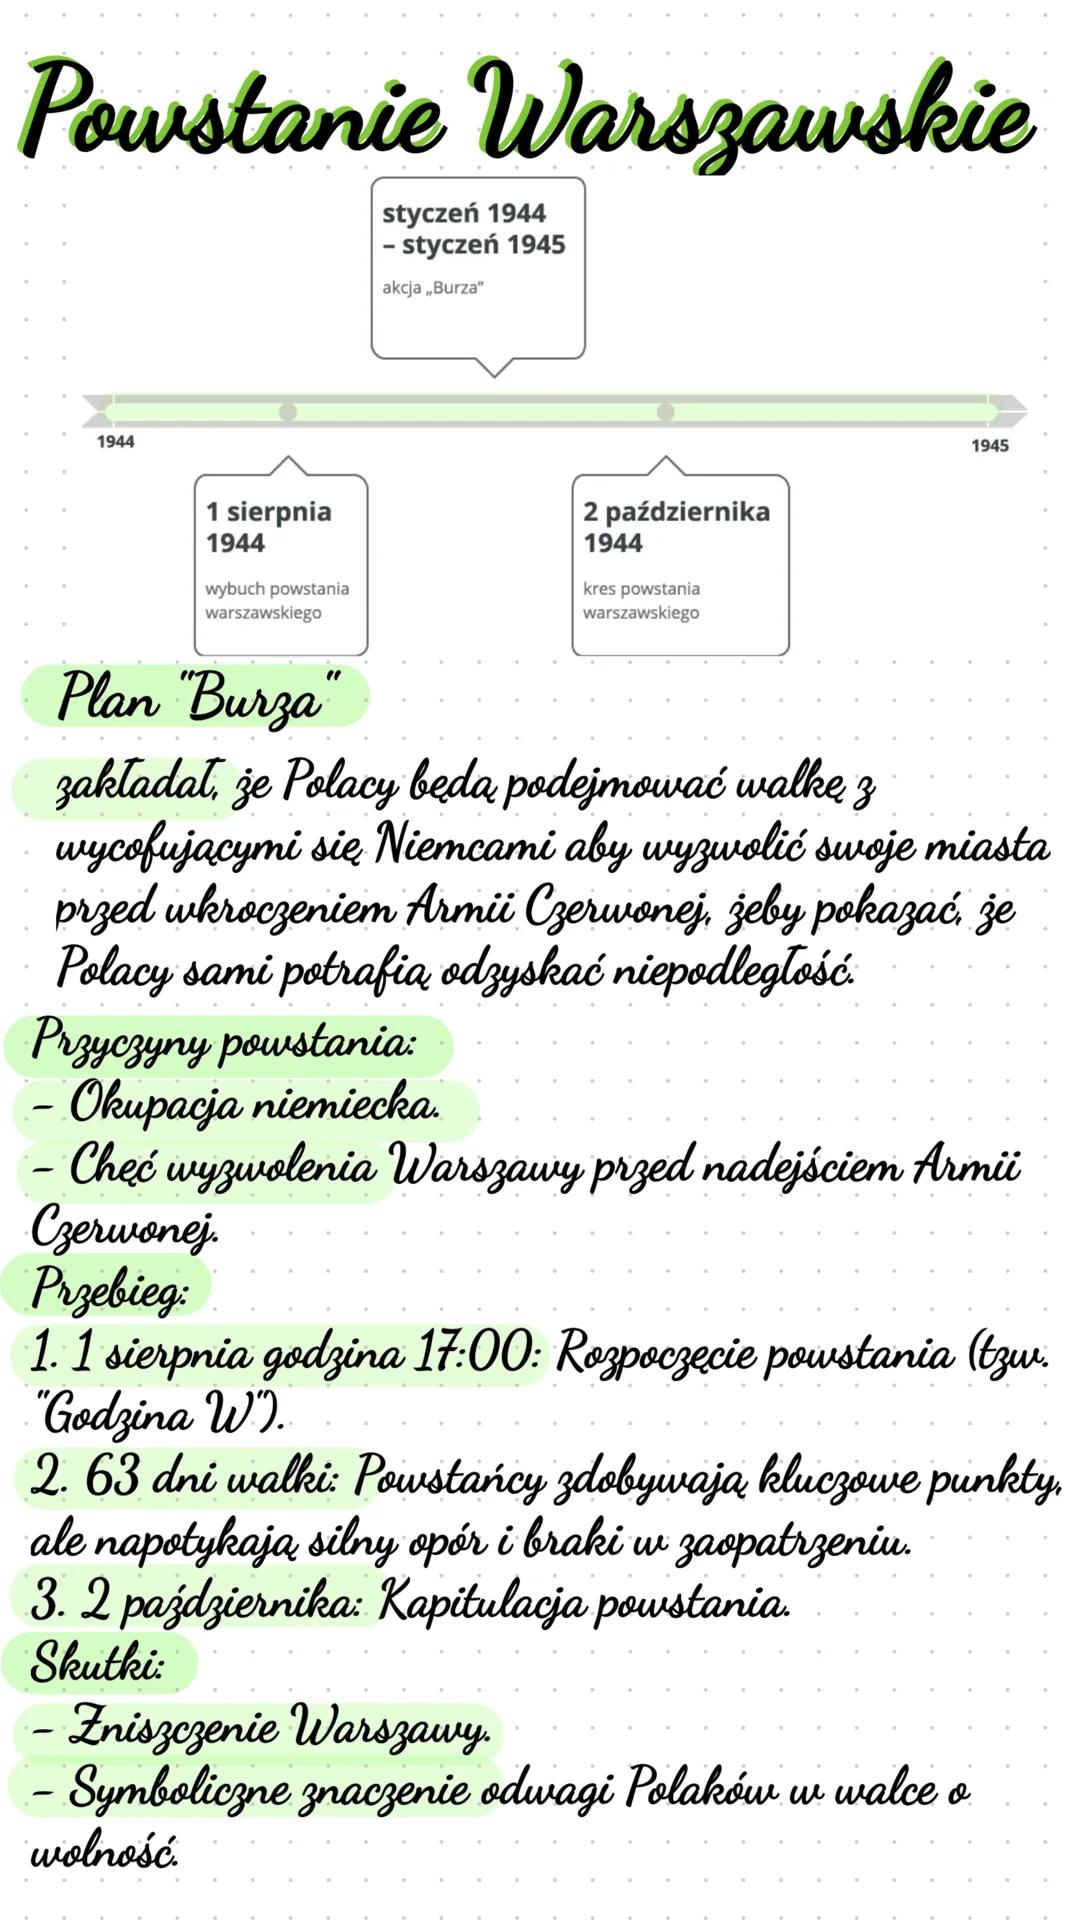 Powstanie Warszawskie
styczeń 1944
– styczeń 1945
akcja „Burza”
1944
1945
1 sierpnia
1944
wybuch powstania
warszawskiego
2 października
1944
kres powstania
warszawskiego
Plan "Burza"
zakładał, że Polacy będą podejmować walkę z
wycofującymi się Niemcami aby wyzwolić swoje miasta
przed wkroczeniem Armii Czerwonej, żeby pokazać, że
Polacy sami potrafią odzyskać niepodległość.
Przyczyny powstania:
– Okupacja niemiecka.
– Chęć wyzwolenia Warszawy przed nadejściem Armii
Czerwonej.
Przebieg:
1. 1 sierpnia godzina 17:00: Rozpoczęcie powstania (tzw.
"Godzina W").
2. 63 dni walki: Powstańcy zdobywają kluczowe punkty,
ale napotykają silny opór i braki w zaopatrzeniu.
3. 2 października: Kapitulacja powstania.
Skutki:
– Zniszczenie Warszawy.
– Symboliczne znaczenie odwagi Polaków w walce o
wolność.